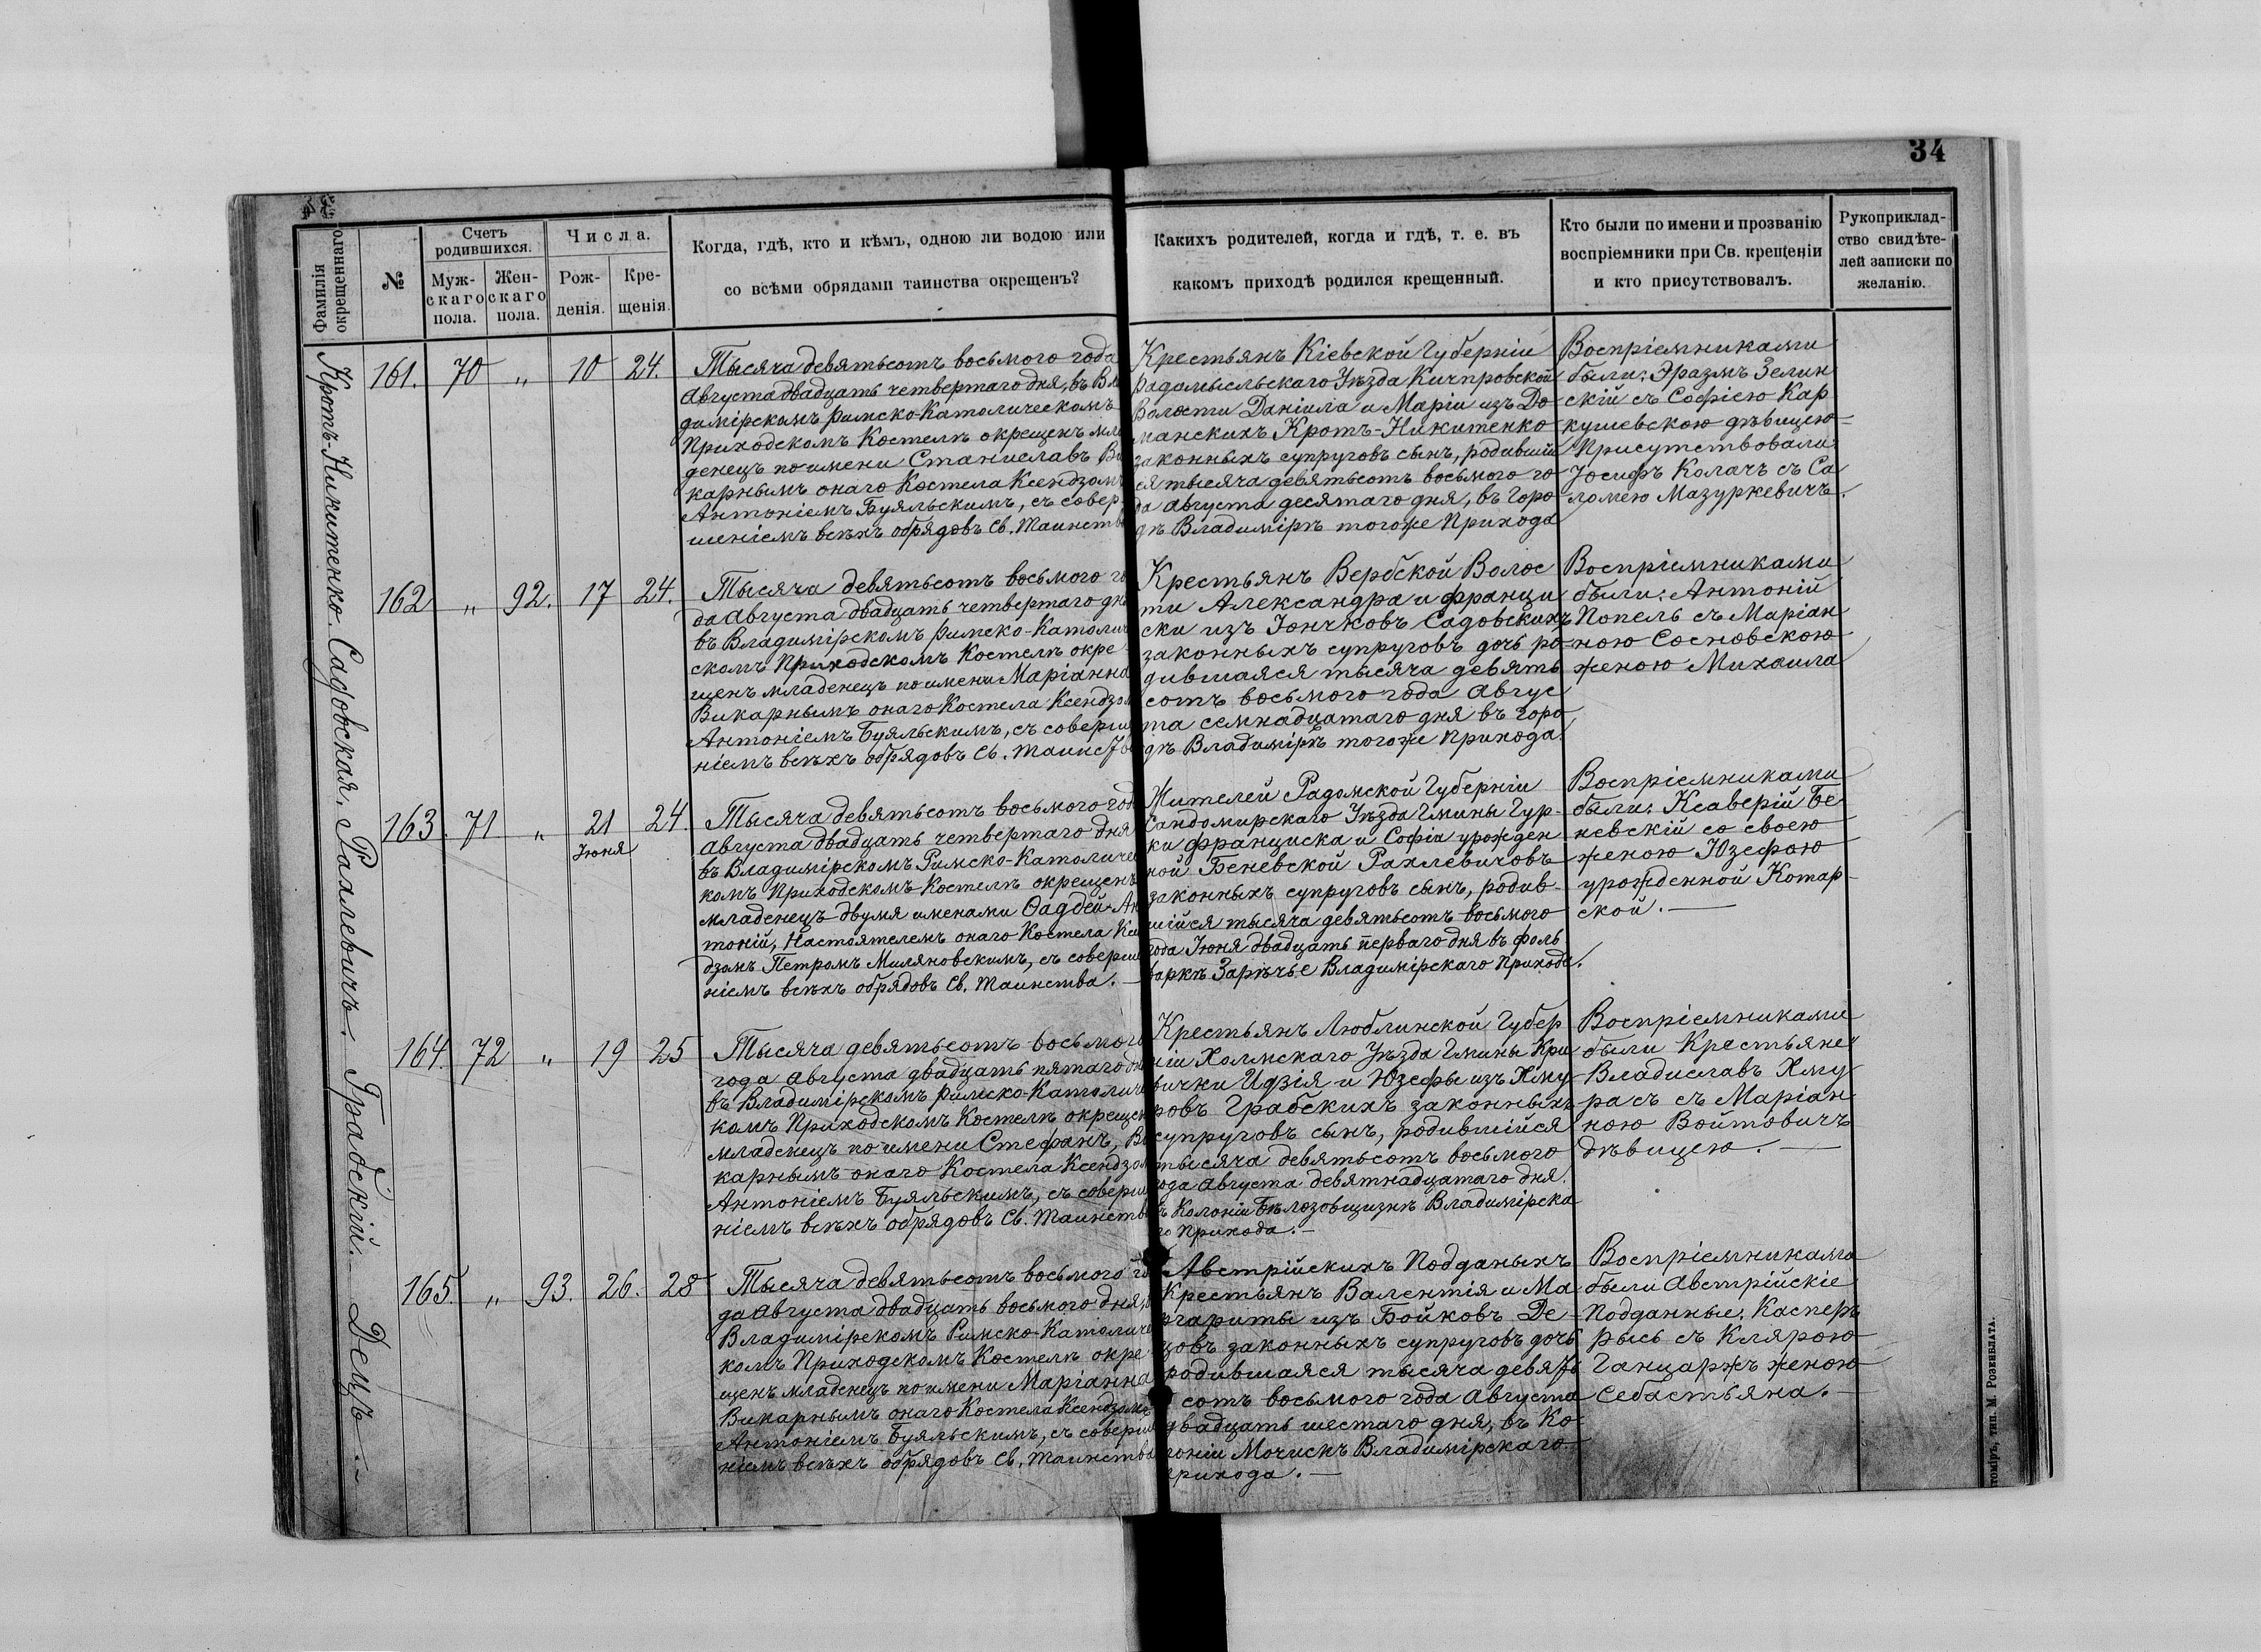 34
Фамилія окрещеннаго.
№
Счетъ родившихся.
Муж-
скаго
пола.
Жен-
скаго
пола.
Числа.
Рож-
денія.
Кре-
щенія.
Когда, гдѣ, кто и кѣмъ, одною ли водою или
со всѣми обрядами таинства окрещенъ?
Какихъ родителей, когда и гдѣ, т. е. въ
какомъ приходѣ родился крещенный.
Кто были по имени и прозванію
воспріемники при Св. крещеніи
и кто присутствовалъ.
Рукоприклад-
ство свидѣте-
лей записки по
желанію.
Кротъ-Никитенко.
161. 70 „ 10 24.
Тысяча девятьсотъ восьмого года
Августа двадцать четвертаго дня, въ Вла
димірскомъ Римско-Католическомъ
Приходскомъ Костелѣ окрещенъ мла
денецъ по имени Станиславъ Ви
карнымъ онаго Костела Ксендзомъ
Антоніемъ Буяльскимъ, съ совер
шеніемъ всѣхъ обрядовъ Св. Таинства
Крестьянъ Кіевской Губерніи
Радомысльскаго Уѣзда Кичпровской
Волости Даніила и Маріи изъ До
манскихъ Кротъ-Никитенко
законныхъ супруговъ сынъ, родивший
ся тысяча девятьсотъ восьмого го
да Августа десятаго дня, въ Горо
дѣ Владимірѣ тогоже Прихода
Воспріемниками
были: Эразмъ Зелин
скій съ Софіею Кар
кушевскою дѣвицею
Присутствовали
Іосифъ Колачъ съ Са
ломею Мазуркевичъ.
Садовская.
162 „ 92. 17 24.
Тысяча девятьсотъ восьмого го
да Августа двадцать четвертаго дня
въ Владимірскомъ Римско-Католиче
скомъ Приходскомъ Костелѣ окре
щенъ младенецъ по имени Маріанна
Викарнымъ онаго Костела Ксендзом
Антоніемъ Буяльскимъ, съ соверше
ніемъ всѣхъ обрядовъ Св. Таинства
Крестьянъ Вербской Волос
ти Александра и Франци
ски изъ Іончковъ Садовскихъ
законныхъ супруговъ дочь ро
дившаяся тысяча девять
сотъ восьмого года Авгус
та семнадцатаго дня въ Горо
дѣ Владимірѣ тогоже Прихода.
Воспріемниками
были: Антоній
Попель съ Маріан
ною Сосновскою
женою Михаила
Рахлевичъ.
163. 71 „ 21 Іюня 24.
Тысяча девятьсотъ восьмого года
Августа двадцать четвертаго дня
въ Владимірскомъ Римско-Католичес
комъ Приходскомъ Костелѣ окрещенъ
младенецъ двумя именами Фаддей-Ан
тоній, Настоятелемъ онаго Костела Ксен
дзомъ Петромъ Миляновскимъ, съ соверше
ніемъ всѣхъ обрядовъ Св. Таинства. —
Жителей Радомской Губерніи
Сандомирскаго Уѣзда Гмины Гур-
ки Франциска и Софіи урожден
ной Беневской Рахлевичовъ
законныхъ супруговъ сынъ, родив-
шійся тысяча девятьсотъ восьмого
года Іюня двадцать перваго дня въ Фоль
варкѣ Зарѣчье Владимірскаго Прихода.
Воспріемниками
были: Ксаверій Бе
невскій со своею
женою Юзефою
урожденной Котар-
ской. —
Грабскій.
164. 72 „ 19 25
Тысяча девятьсотъ восьмого
года Августа двадцать пятаго дня
въ Владимірскомъ Римско-Католичес
комъ Приходскомъ Костелѣ окрещенъ
младенецъ по имени Стефанъ, Ви
карнымъ онаго Костела Ксендзом
Антоніемъ Буяльскимъ, съ соверше
ніемъ всѣхъ обрядовъ Св. Таинства
Крестьянъ Люблинской Губер
ніи Холмскаго Уѣзда Гмины Кри
вички Идзія и Юзефы изъ Хму
ровъ Грабскихъ законныхъ
супруговъ сынъ, родившійся
тысяча девятьсотъ восьмого
года Августа девятнадцатаго дня.
въ Колоніи Бѣлозовщизнѣ Владимірска
го Прихода. —
Воспріемниками
были Крестьяне
Владиславъ Хму
расъ съ Маріан
ною Войтовичъ
дѣвицею. —
Децъ.
165. „ 93. 26. 28
Тысяча девятьсотъ восьмого го
да Августа двадцать восьмого дня, въ
Владимірскомъ Римско-Католичес
комъ Приходскомъ Костелѣ окре
щенъ младенецъ по имени Маріанна
Викарнымъ онаго Костела Ксендзомъ
Антоніемъ Буяльскимъ, съ соверше
ніемъ всѣхъ обрядовъ Св. Таинства
Австрійскихъ Подданыхъ
Крестьянъ Валентія и Ма
ргариты изъ Бойковъ Де
цовъ законныхъ супруговъ дочь
родившаяся тысяча девять
сотъ восьмого года Августа
двадцать шестаго дня, въ Ко
лоніи Мочискъ Владимірскаго
Прихода. —
Воспріемниками
были Австрійскіе
Подданные: Касперъ
Рысь съ Клярою
Ганцаржъ женою
Себастьяна. —
томіръ, тип. М. Розенблата.